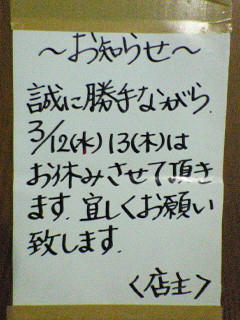 ～お知らせ～
誠に勝手ながら.
3/12(水)13(木)は
お休みさせて頂き
ます.宜しくお願い
致します.
〈店主〉